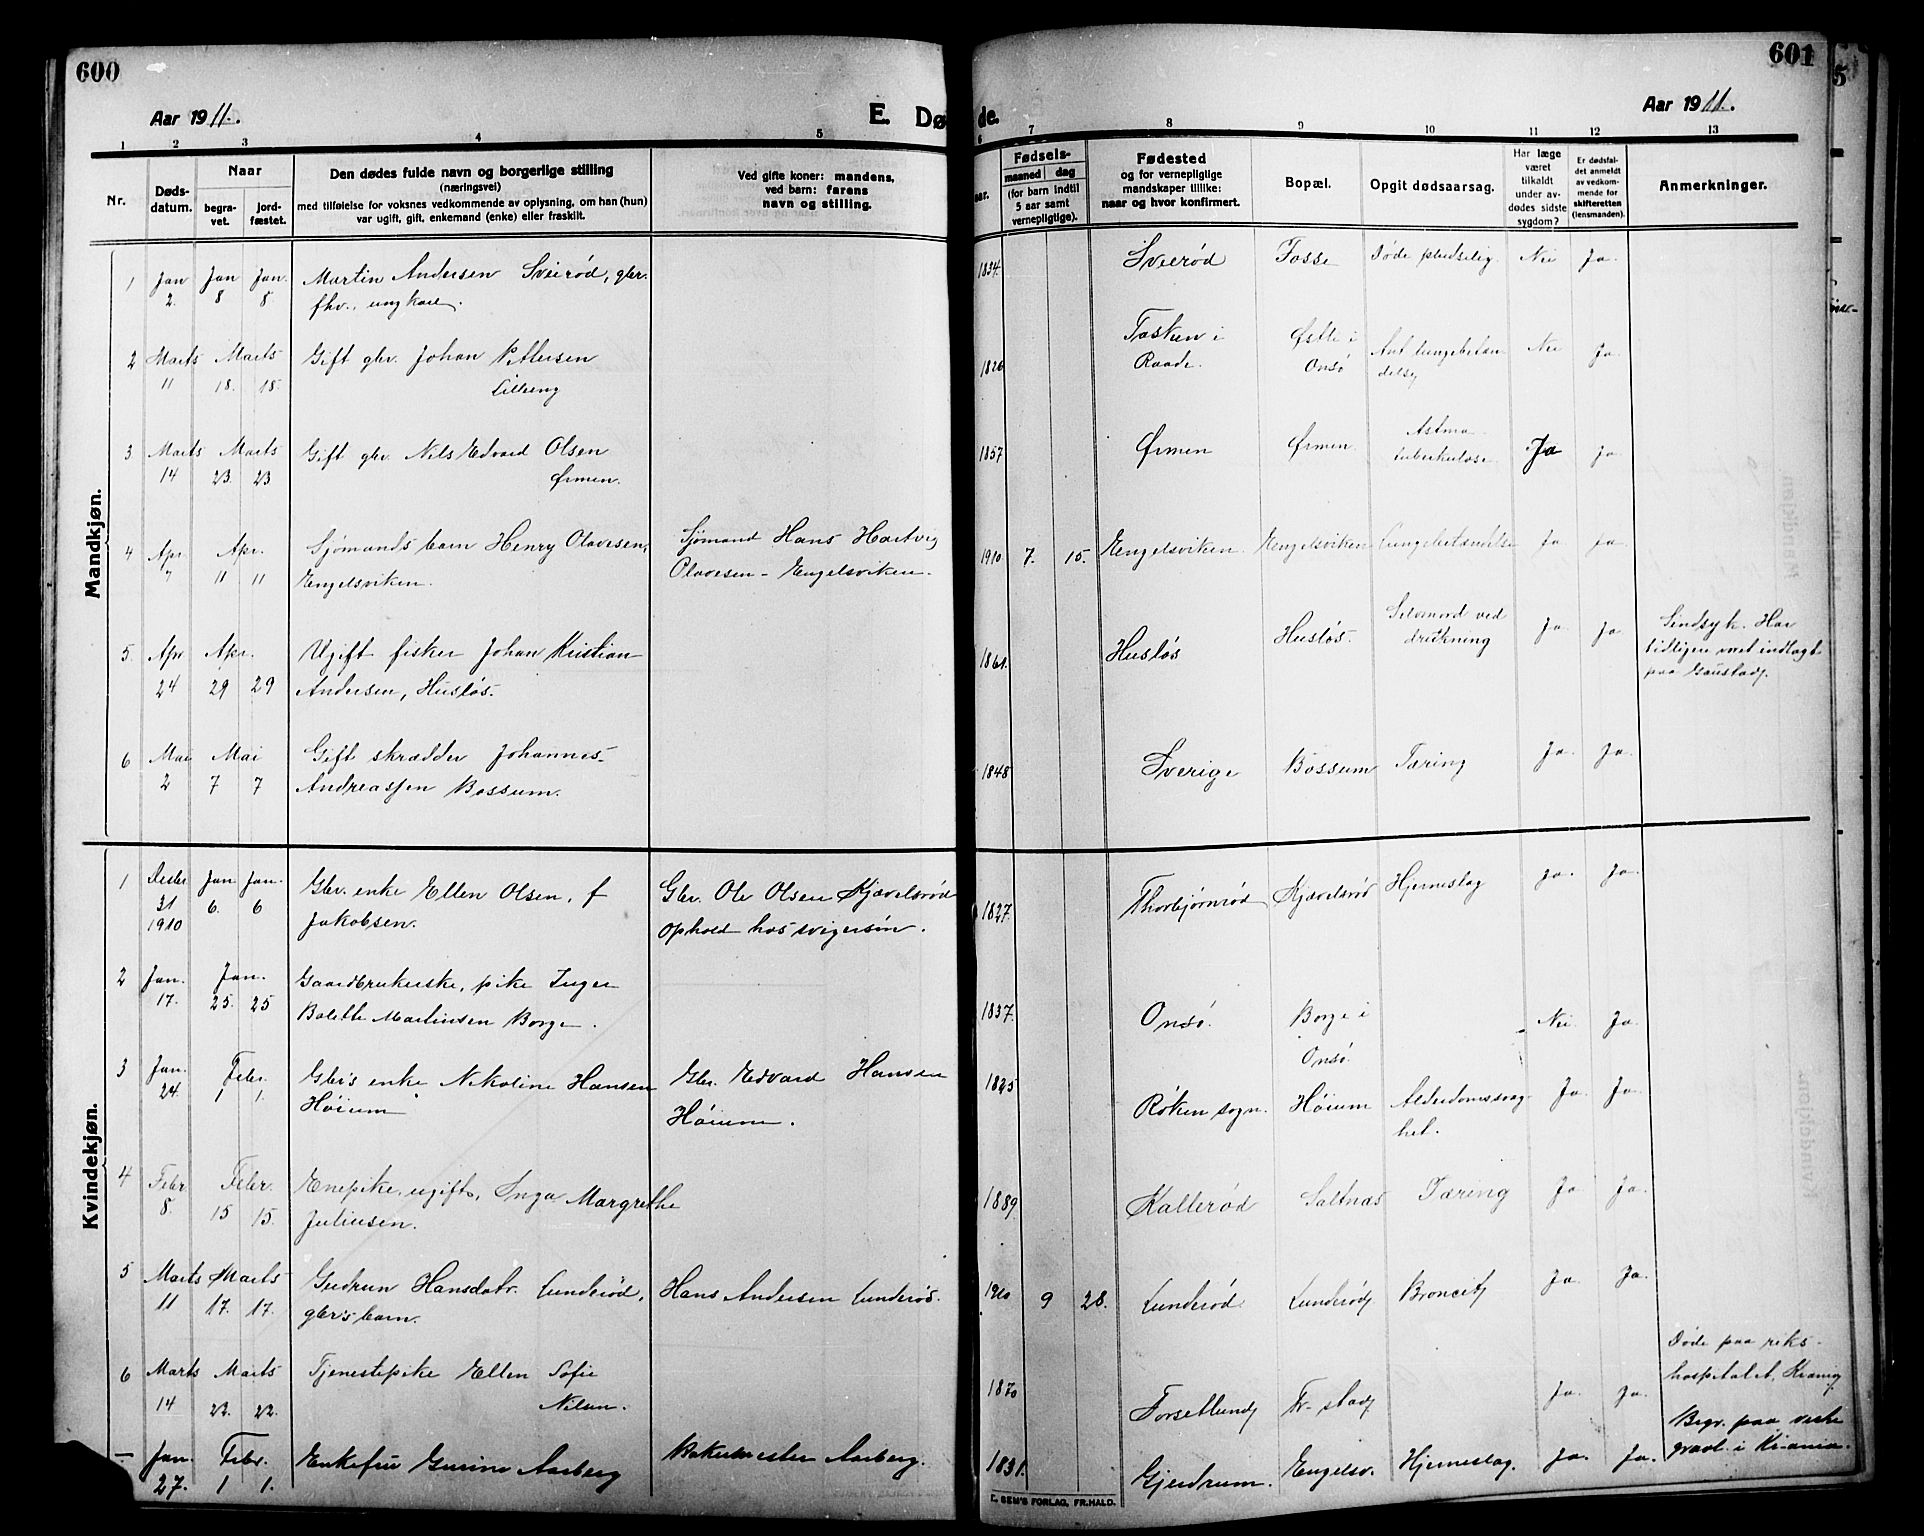 600
601
5
Aar 1911.
E. Dø
de.
Aar 1911.
1 2 3 4 5
6 7 8 9 10 11 12 13
Nr.
Døds-
datum.
Naar
begra-
vet.
jord-
fæstet.
Den dødes fulde navn og borgerlige stilling
(næringsvei)
med tilføielse for voksnes vedkommende av oplysning, om han (hun)
var ugift, gift, enkemand (enke) eller fraskilt.
Ved gifte koner: mandens,
ved barn: farens
navn og stilling.
aar.
Fødsels-
maaned dag
(for barn indtil
5 aar samt
vernepligtige).
Fødested
og for vernepligtige
mandskaper tillike:
naar og hvor konfirmert.
Bopæl.
Opgit dødsaarsag.
Har læge
været
tilkaldt
under av-
dødes sidste
sygdom?
Er dødsfal-
det anmeldt
av vedkom-
mende for
skifteretten
(lensmanden).
Anmerkninger.
Mandkjøn.
1 Jan 2. Jan 8 Jan. 8. Martin Andersen Sveirød, gbr.
fhv., ungkarl. 1834. Sveerød Fosse Døde pludselig. Nei Ja.
2 Marts 11 Marts 18. 18. Gift gbr. Johan Pettersen
Lilleng 1826 Tasken i
Raade. Østte i
Onsø Ant lungebetæn-
delse Nei Ja.
3 Marts 14 Marts 23. 23 Gift gbr. Nils Edvard Olsen
Ørmen. 1857 Ørmen Ørmen. Astma
tuberkulose Ja Ja
4 Apr. 7 Apr. 11 11 Sjømands barn Henry Olavesen,
Engelsviken. Sjømand Hans Hartvig
Olavesen - Engelsviken. 1910 7. 15. Engelsviken. Engelsviken Lungebetændelse Ja. Ja.
5. Apr 24 Apr. 29 29 Ugift fisker Johan Kristian
Andersen, Husløs. 1861. Husløs Husløs. Selvmord ved
drukning Ja. Ja Sindsyk. Har
tidligere vært indlagt
paa Gaustad.
6 Mai 2 Mai 7 7 Gift skrædder Johannes
Andreassen Bossum. 1848 Sverige Bossum Tæring Ja. Ja.
Kvindekjøn.
1 Desbr 31 1910 Jan 6. Jan. 6 Gbr. enke Ellen Olsen, f
Jakobsen. Gbr. Ole Olsen Kjævelsrød
Ophold hos svigersøn. 1827. Thorbjørnrød Kjævelsrød Hjerneslag Ja. Ja.
2 Jan. 17. Jan. 25. 25 Gaardbrukerske, pike Inger
Bolette Martinsen Borge. 1837. Onsø. Borge i
Onsø. Nei. Ja.
3 Jan. 24. Febr. 1 1. Gbr's enke Nikoline Hansen
Høium Gbr. Edvard Hansen
Høium. 1825 Røken sogn. Høium Alderdomssvag-
het. Ja. Ja.
4 Febr 8. Febr. 15 15. Enepike, ugift, Inga Margrethe
Juliusen. 1889 Kallerød Saltnæs Tæring Ja Ja.
5 Marts 11 Marts 17. 17. Gudrun Hansdatr. Lunderød,
gbr's barn. Hans Andersen Lunderød. 1910 9 28. Lunderød. Lunderød Broncit Ja. Ja.
6 Marts 14 Marts 22. 22. Tjenestepike Ellen Sofie
Nilsen. 1870 Torsetlund Fr-stad Ja. Ja. Døde paa riks-
hospitalet, Kristiania.
Begr. paa vestre
gravl. i Kr.ania.
— Jan. 27. Febr. 1 1. Enkefru Gurine Aarberg Bakermester Aarberg. 1831. Gjerdrum. Engelsv. Hjerneslag. Ja. Ja.
E. SEM'S FORLAG, FR.HALD.